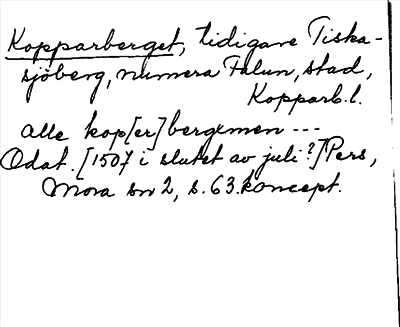 Kopparberget, tidigare Tiska-
sjöberg, numera Falun, stad,
Kopparb.l.
alle kop[er]bergxmen ---
Odat. [1507 i slutet av juli?] Pers,
Mora sn 2, s. 63. koncept.